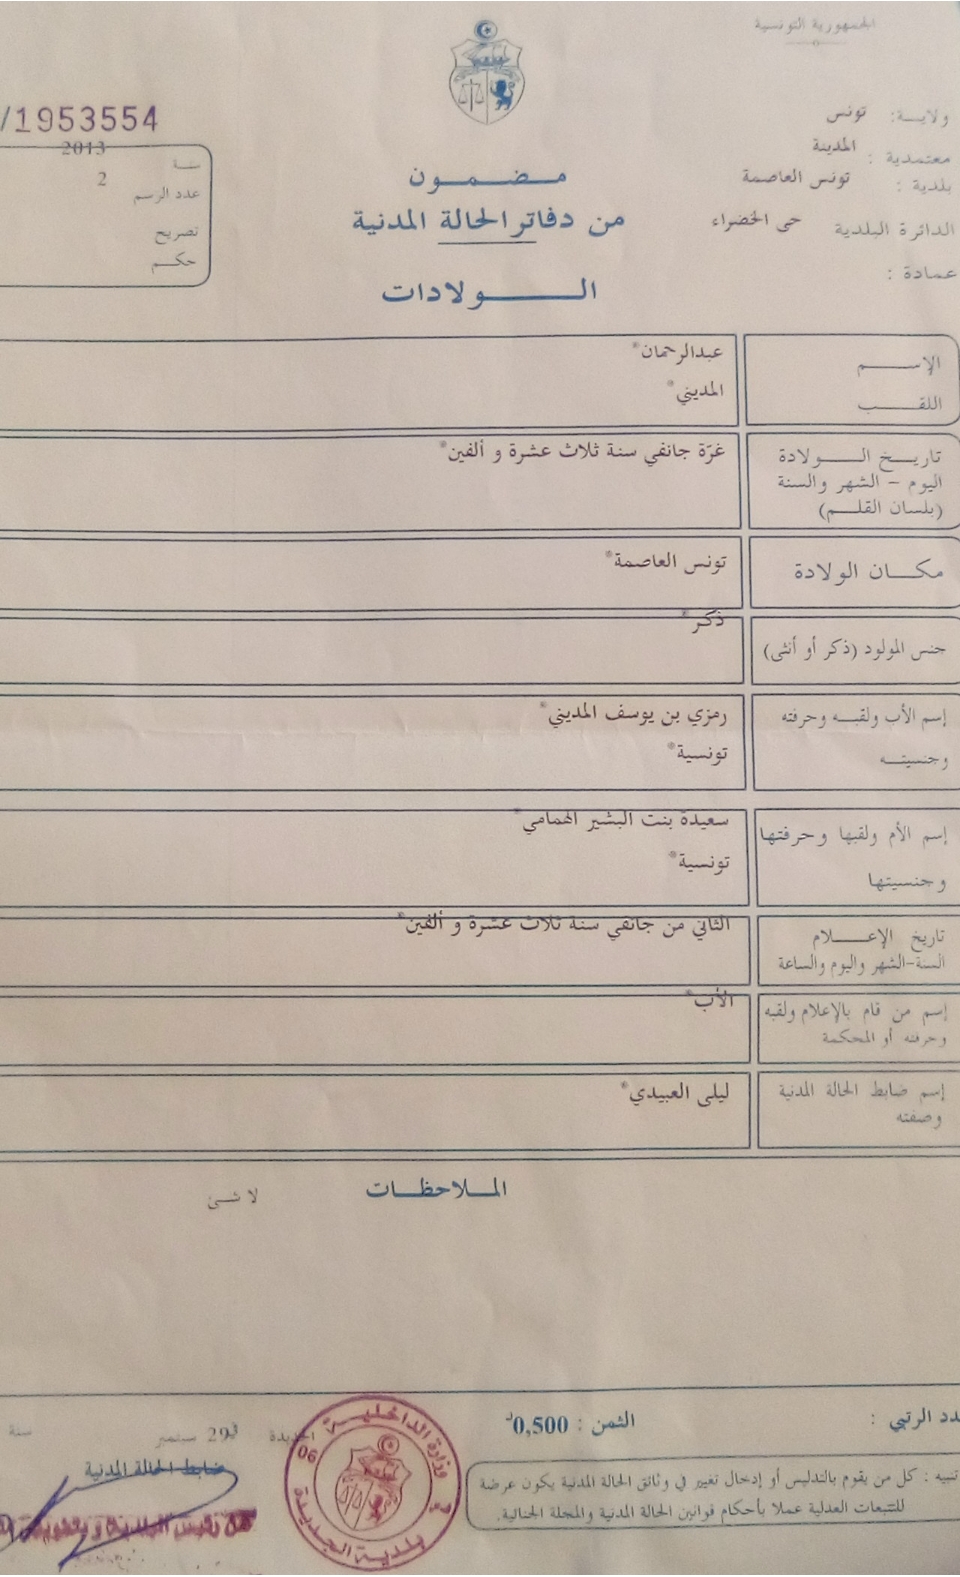 الجمهورية التونسية
ولايــة: تونس
معتمدية : المدينة
بلدية : تونس العاصمة
الدائرة البلدية حى الخضراء
عمادة :
/1953554
سنة 2013
عدد الرسم 2
تصريح
حكم
مضمون
من دفاتر الحالة المدنية
الولادات
الإسم عبدالرحمان*
اللقب المديني*
تاريخ الولادة غرّة جانفي سنة ثلاث عشرة و ألفين*
اليوم - الشهر والسنة
(بلسان القلم)
مكان الولادة تونس العاصمة*
جنس المولود (ذكر أو أنثى) ذكر*
إسم الأب ولقبه وحرفته رمزي بن يوسف المديني*
وجنسيته تونسية*
إسم الأم ولقبها وحرفتها سعيدة بنت البشير الهمامي*
وجنسيتها تونسية*
تاريخ الإعلام الثاني من جانفي سنة ثلاث عشرة و ألفين*
السنة-الشهر واليوم والساعة
إسم من قام بالإعلام ولقبه الأب*
وحرفته أو المحكمة
إسم ضابط الحالة المدنية ليلى العبيدي*
وصفته
الملاحظات
لا شئ
دد الرتبي :
الثمن : 0,500د
تنبيه : كل من يقوم بالتدليس أو إدخال تغيير في وثائق الحالة المدنية يكون عرضة
للتتبعات العدلية عملا بأحكام قوانين الحالة المدنية والمجلة الجنائية.
الجديدة في 29 سبتمبر سنة
ضابط الحالة المدنية
وزارة الداخلية
06
بلدية الجديدة